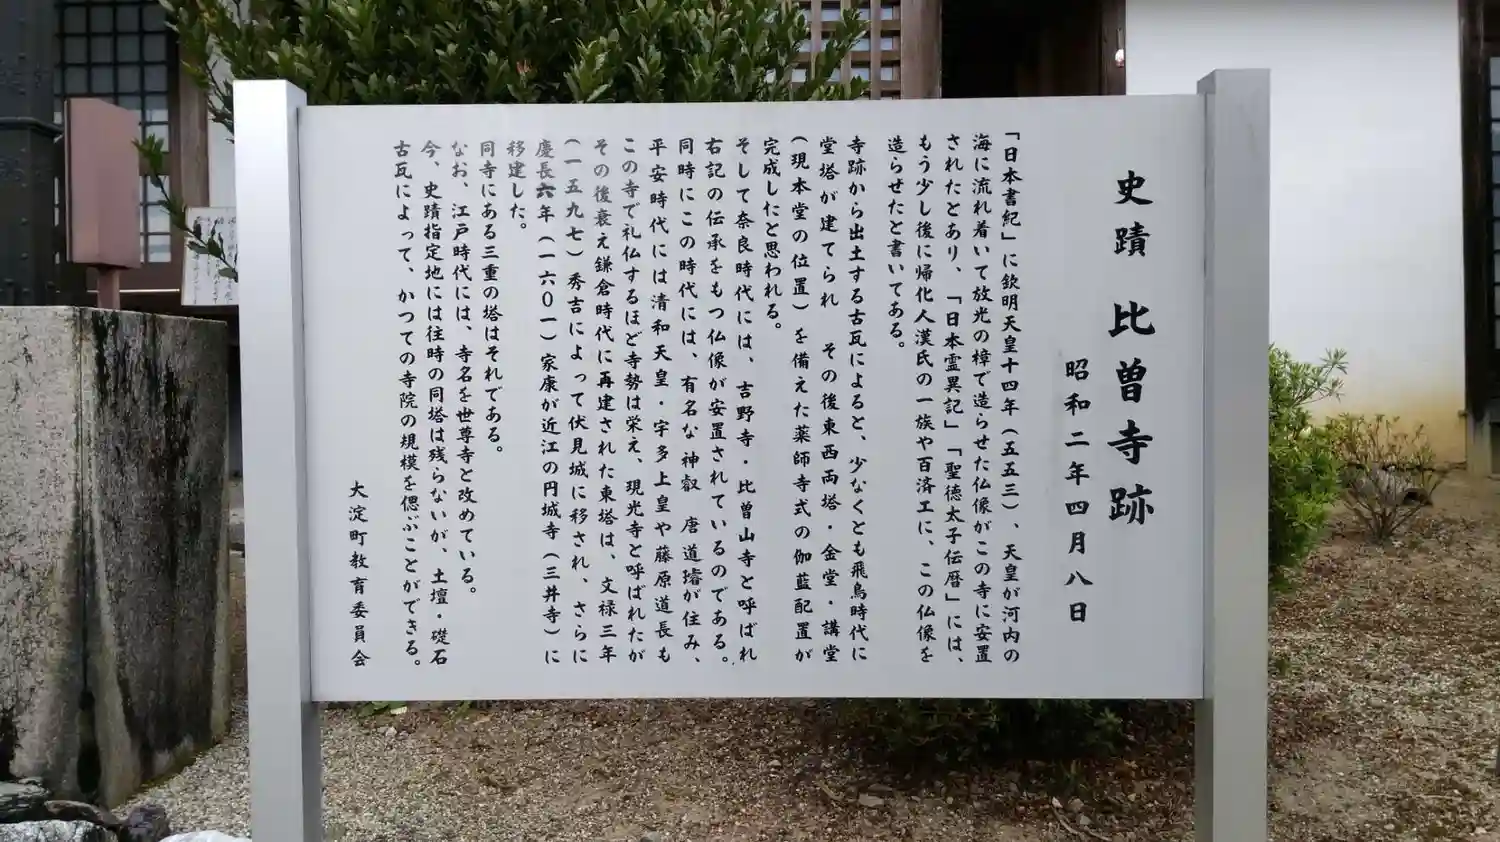 史蹟 比曽寺跡
昭和二年四月八日
「日本書紀」に欽明天皇十四年（五五三）、天皇が河内の
海に流れ着いて放光の樟で造らせた仏像がこの寺に安置
されたとあり、「日本霊異記」「聖徳太子伝暦」には、
もう少し後に帰化人漢氏の一族や百済工に、この仏像を
造らせたと書いてある。
寺跡から出土する古瓦によると、少なくとも飛鳥時代に
堂塔が建てられ その後東西両塔・金堂・講堂
（現本堂の位置）を備えた薬師寺式の伽藍配置が
完成したと思われる。
そして奈良時代には、吉野寺・比曽山寺と呼ばれ
右記の伝承をもつ仏像が安置されているのである。
同時にこの時代には、有名な神叡 唐道璿が住み、
平安時代には清和天皇・宇多上皇や藤原道長も
この寺で礼仏するほど寺勢は栄え、現光寺と呼ばれたが
その後衰え鎌倉時代に再建された東塔は、文禄三年
（一五九七）秀吉によって伏見城に移され、さらに
慶長六年（一六〇一）家康が近江の円城寺（三井寺）に
移建した。
同寺にある三重の塔はそれである。
なお、江戸時代には、寺名を世尊寺と改めている。
今、史蹟指定地には往時の同塔は残らないが、土壇・礎石
古瓦によって、かつての寺院の規模を偲ぶことができる。
大淀町教育委員会